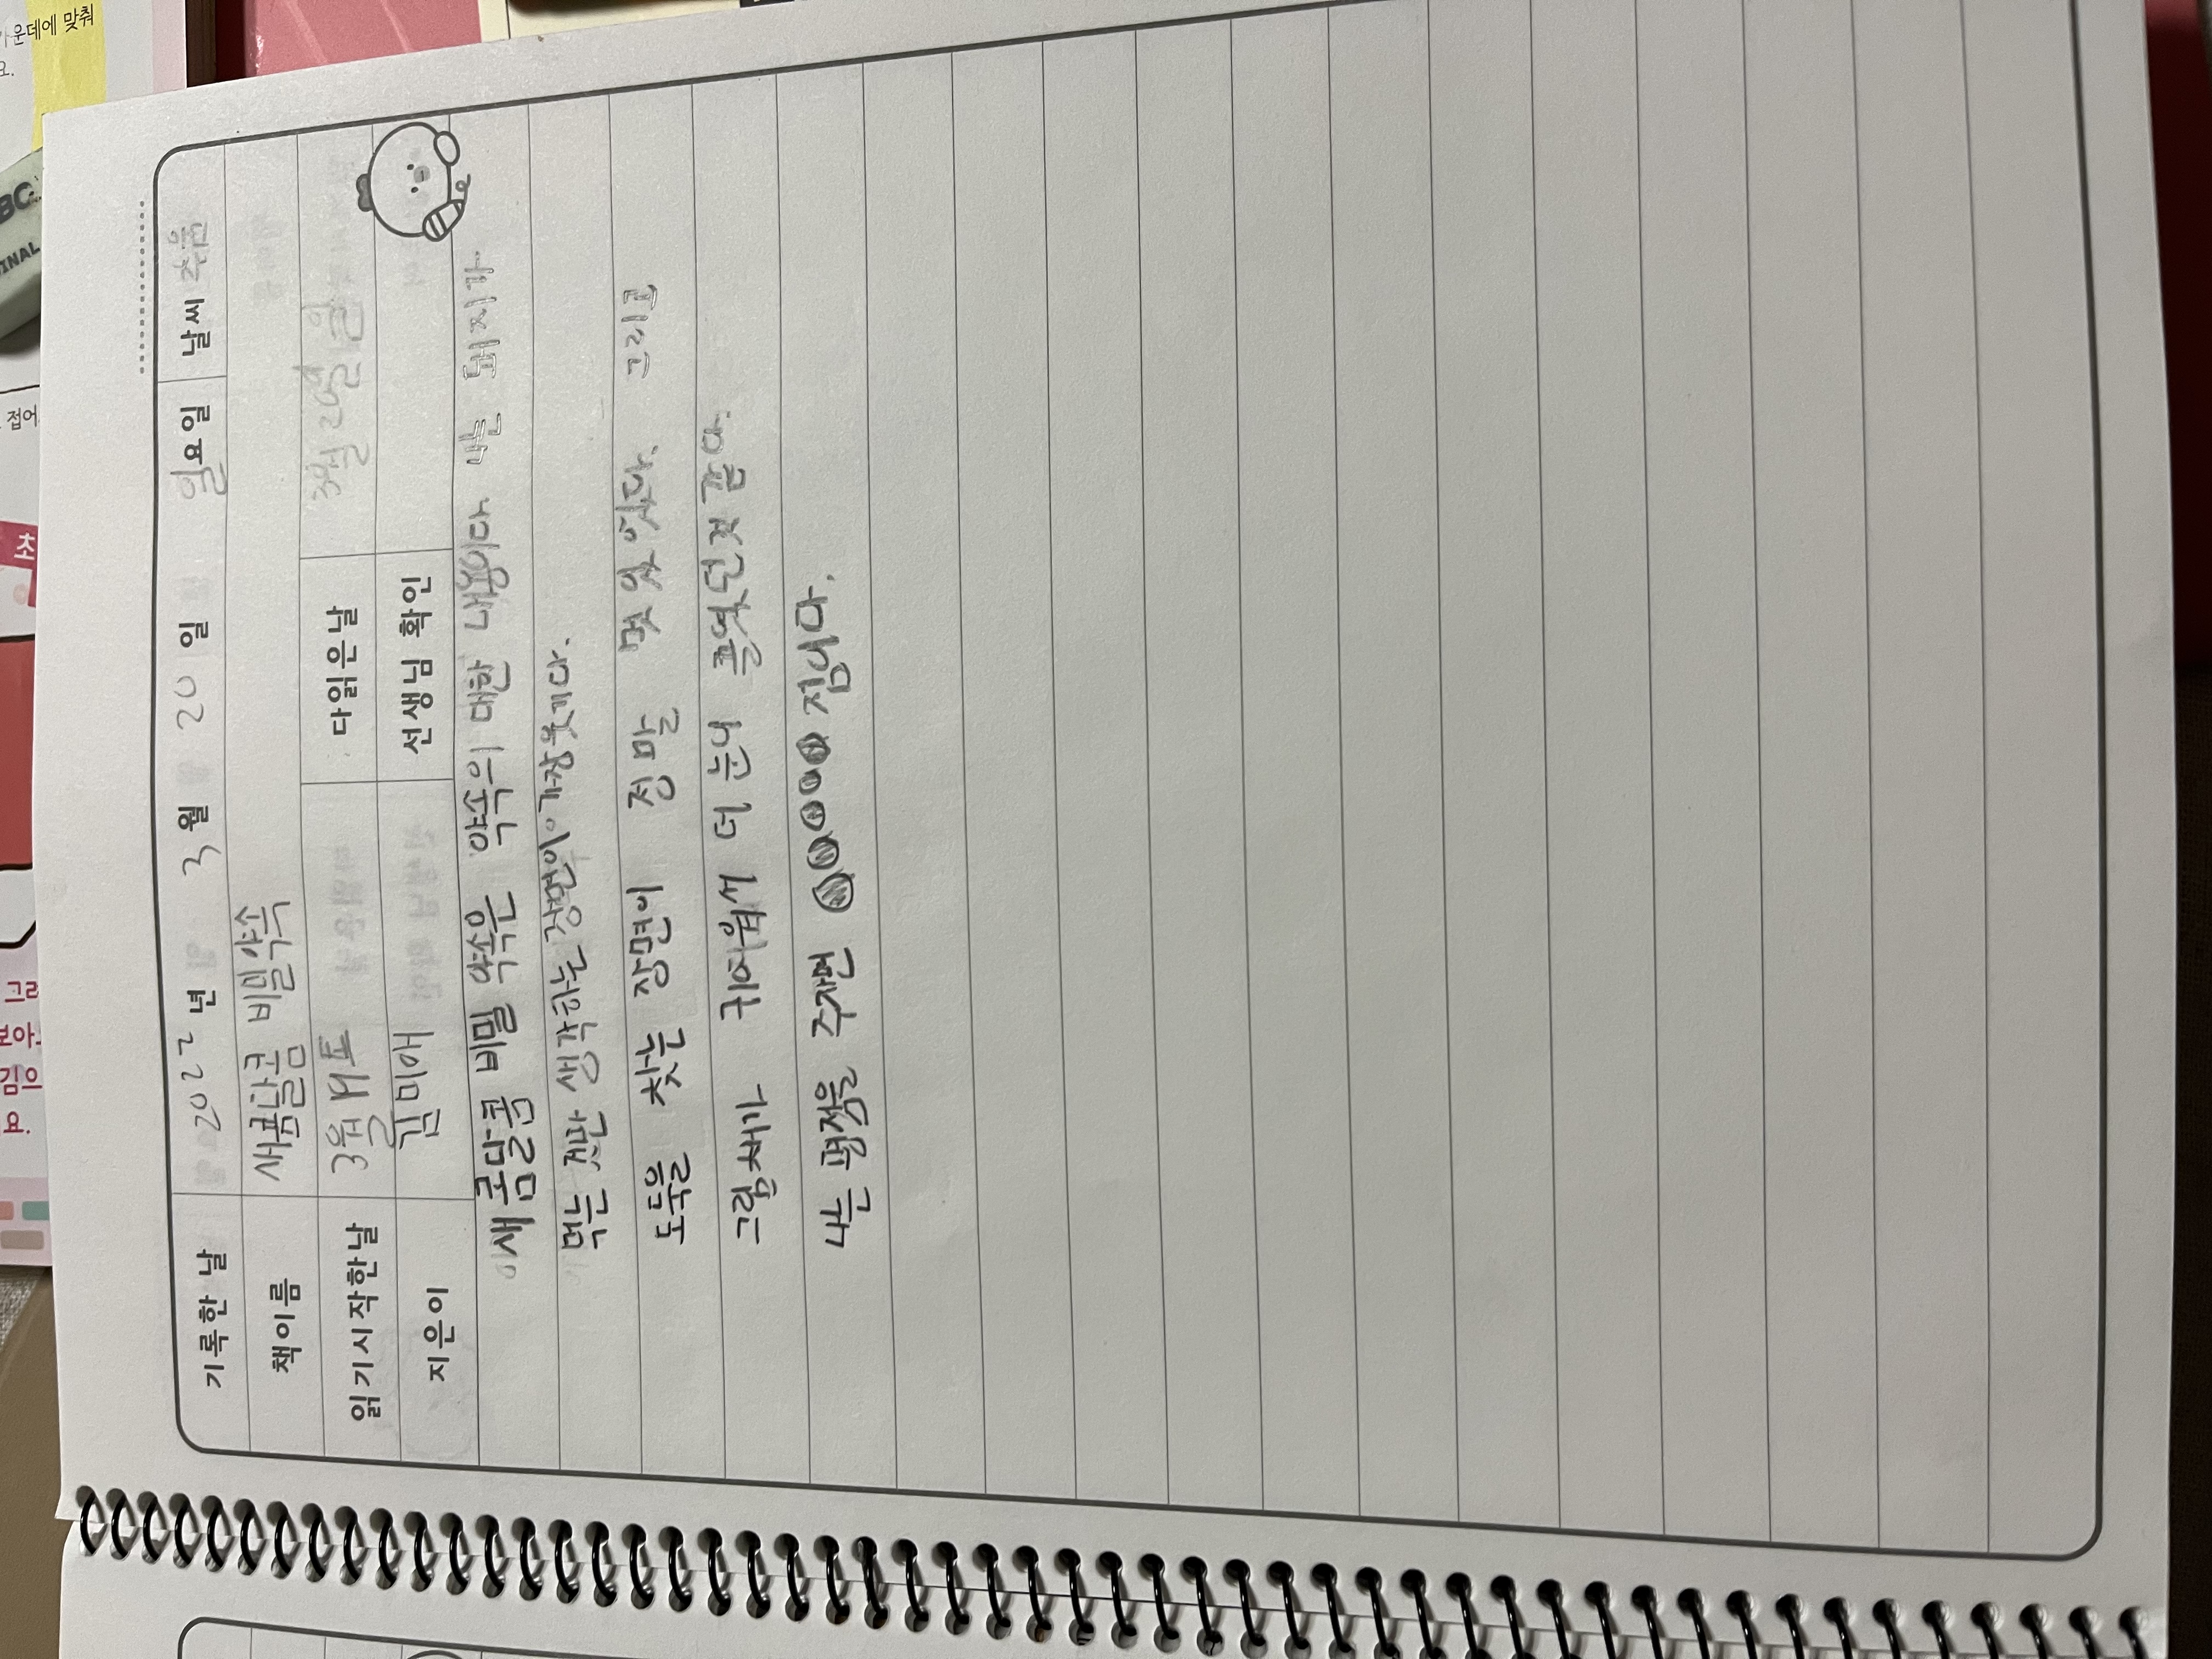 초
점어
가운데에 맞춰
기록한 날 2022 년 3 월 20 일 일요일 날씨 추움
책이름 새콤달콤 비밀약속
읽기시작한날 3월 19 토 다읽은날 3월 20일 일
지은이 김미애 선생님 확인
새콤달콤 비밀 약속은 약속의 대한 내용이다. 나는 돼지가
먹는 것만 생각하는 장면이 가장 웃기다.
도둑을 찾는 장면이 정말 멋있었다. 그리고
그림채가 귀여워서 더 눈이 즐겼던것 같다.
나는 평점을 주자면 점이다.